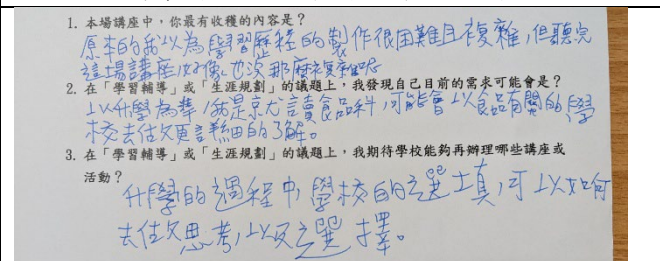 1. 本場講座中，你最有收穫的內容是？
原本的我以為學習歷程的製作很困難且複雜，但聽完
這場講座，好像也沒那麼複雜呢
2. 在「學習輔導」或「生涯規劃」的議題上，我發現自己目前的需求可能會是？
以升學為準，就是京尤言賣食品科，可能會以食品有關的學
校去做更詳細的了解。
3. 在「學習輔導」或「生涯規劃」的議題上，我期待學校能夠再辦理哪些講座或
活動？
升學的過程中，學校的選填，可以如何
去做思考，以及選擇。